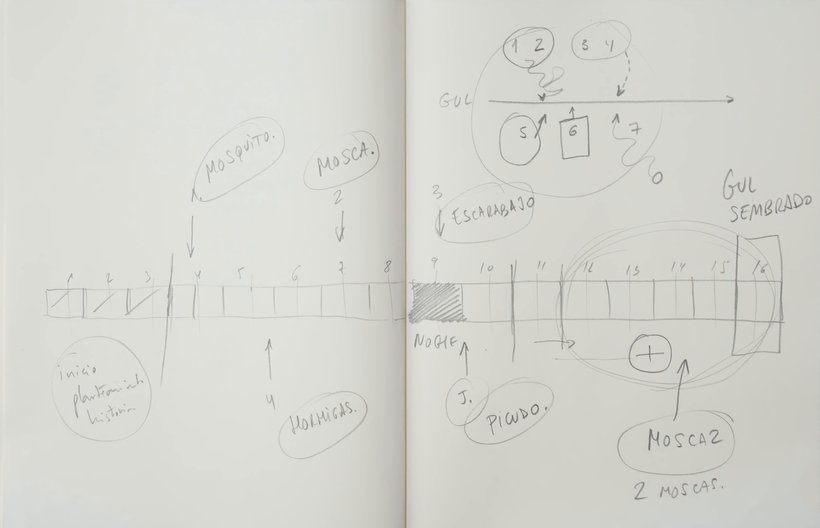 1 2 3 4
GUL
5 6 7
MOSQUITO.
1
MOSCA.
2
3
ESCARABAJO
GUL
SEMBRADO
1 2 3 4 5 6 7 8 9 10 11 12 13 14 15 16
NOCHE
inicio
historia
4
HORMIGAS.
J.
PICUDO.
+
MOSCA2
2 MOSCAS.